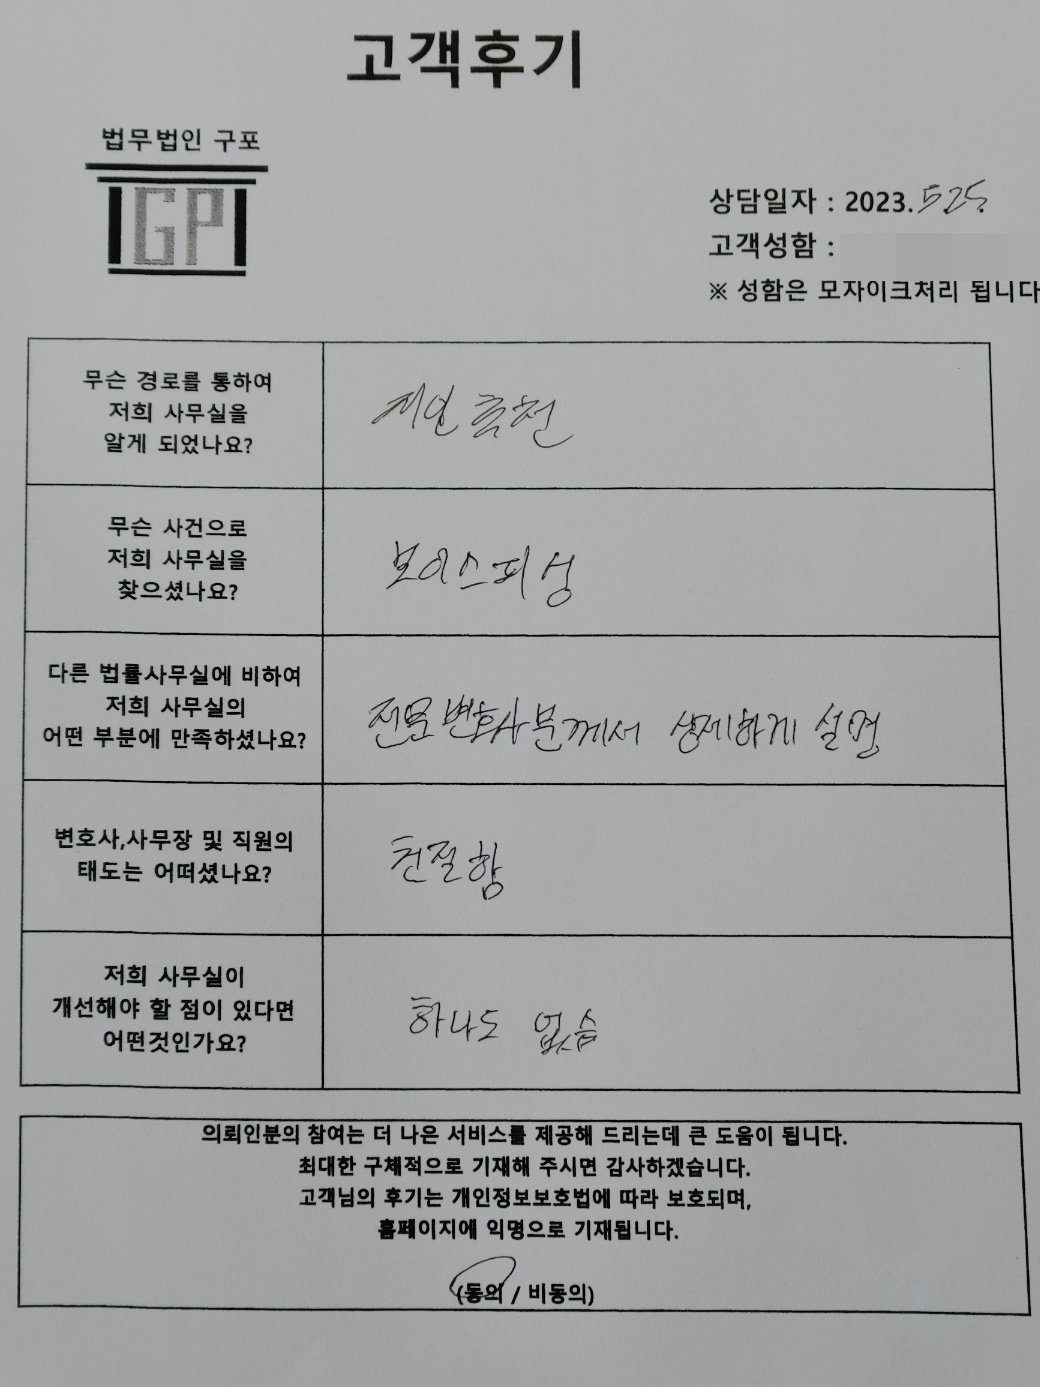 고객후기
법무법인 구포
GP
상담일자 : 2023. 5 25.
고객성함 :
※ 성함은 모자이크처리 됩니다
무슨 경로를 통하여
저희 사무실을
알게 되었나요?
지인 추천
무슨 사건으로
저희 사무실을
찾으셨나요?
보이스피싱
다른 법률사무실에 비하여
저희 사무실의
어떤 부분에 만족하셨나요?
전문변호사분께서 상세하게 설명
변호사,사무장 및 직원의
태도는 어떠셨나요?
친절함
저희 사무실이
개선해야 할 점이 있다면
어떤것인가요?
하나도 없습
의뢰인분의 참여는 더 나은 서비스를 제공해 드리는데 큰 도움이 됩니다.
최대한 구체적으로 기재해 주시면 감사하겠습니다.
고객님의 후기는 개인정보보호법에 따라 보호되며,
홈페이지에 익명으로 기재됩니다.
(동의 / 비동의)